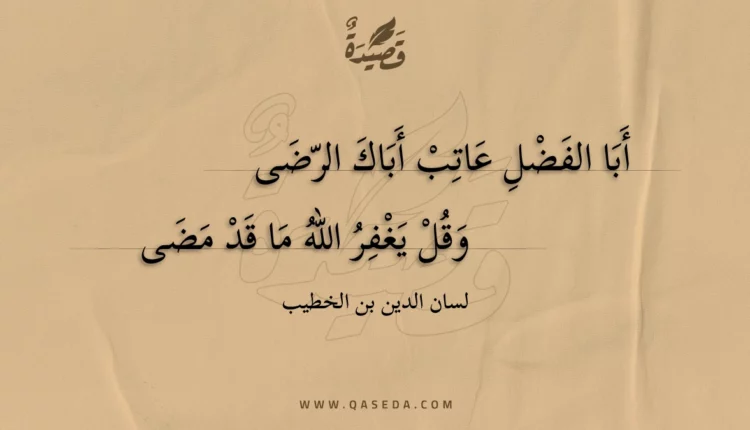 قَصِيدَةٌ
أَبَا الفَضْلِ عَاتِبْ أَبَاكَ الرّضَى
وَقُلْ يَغْفِرُ اللهُ مَا قَدْ مَضَى
لسان الدين بن الخطيب
WWW.QASEDA.COM